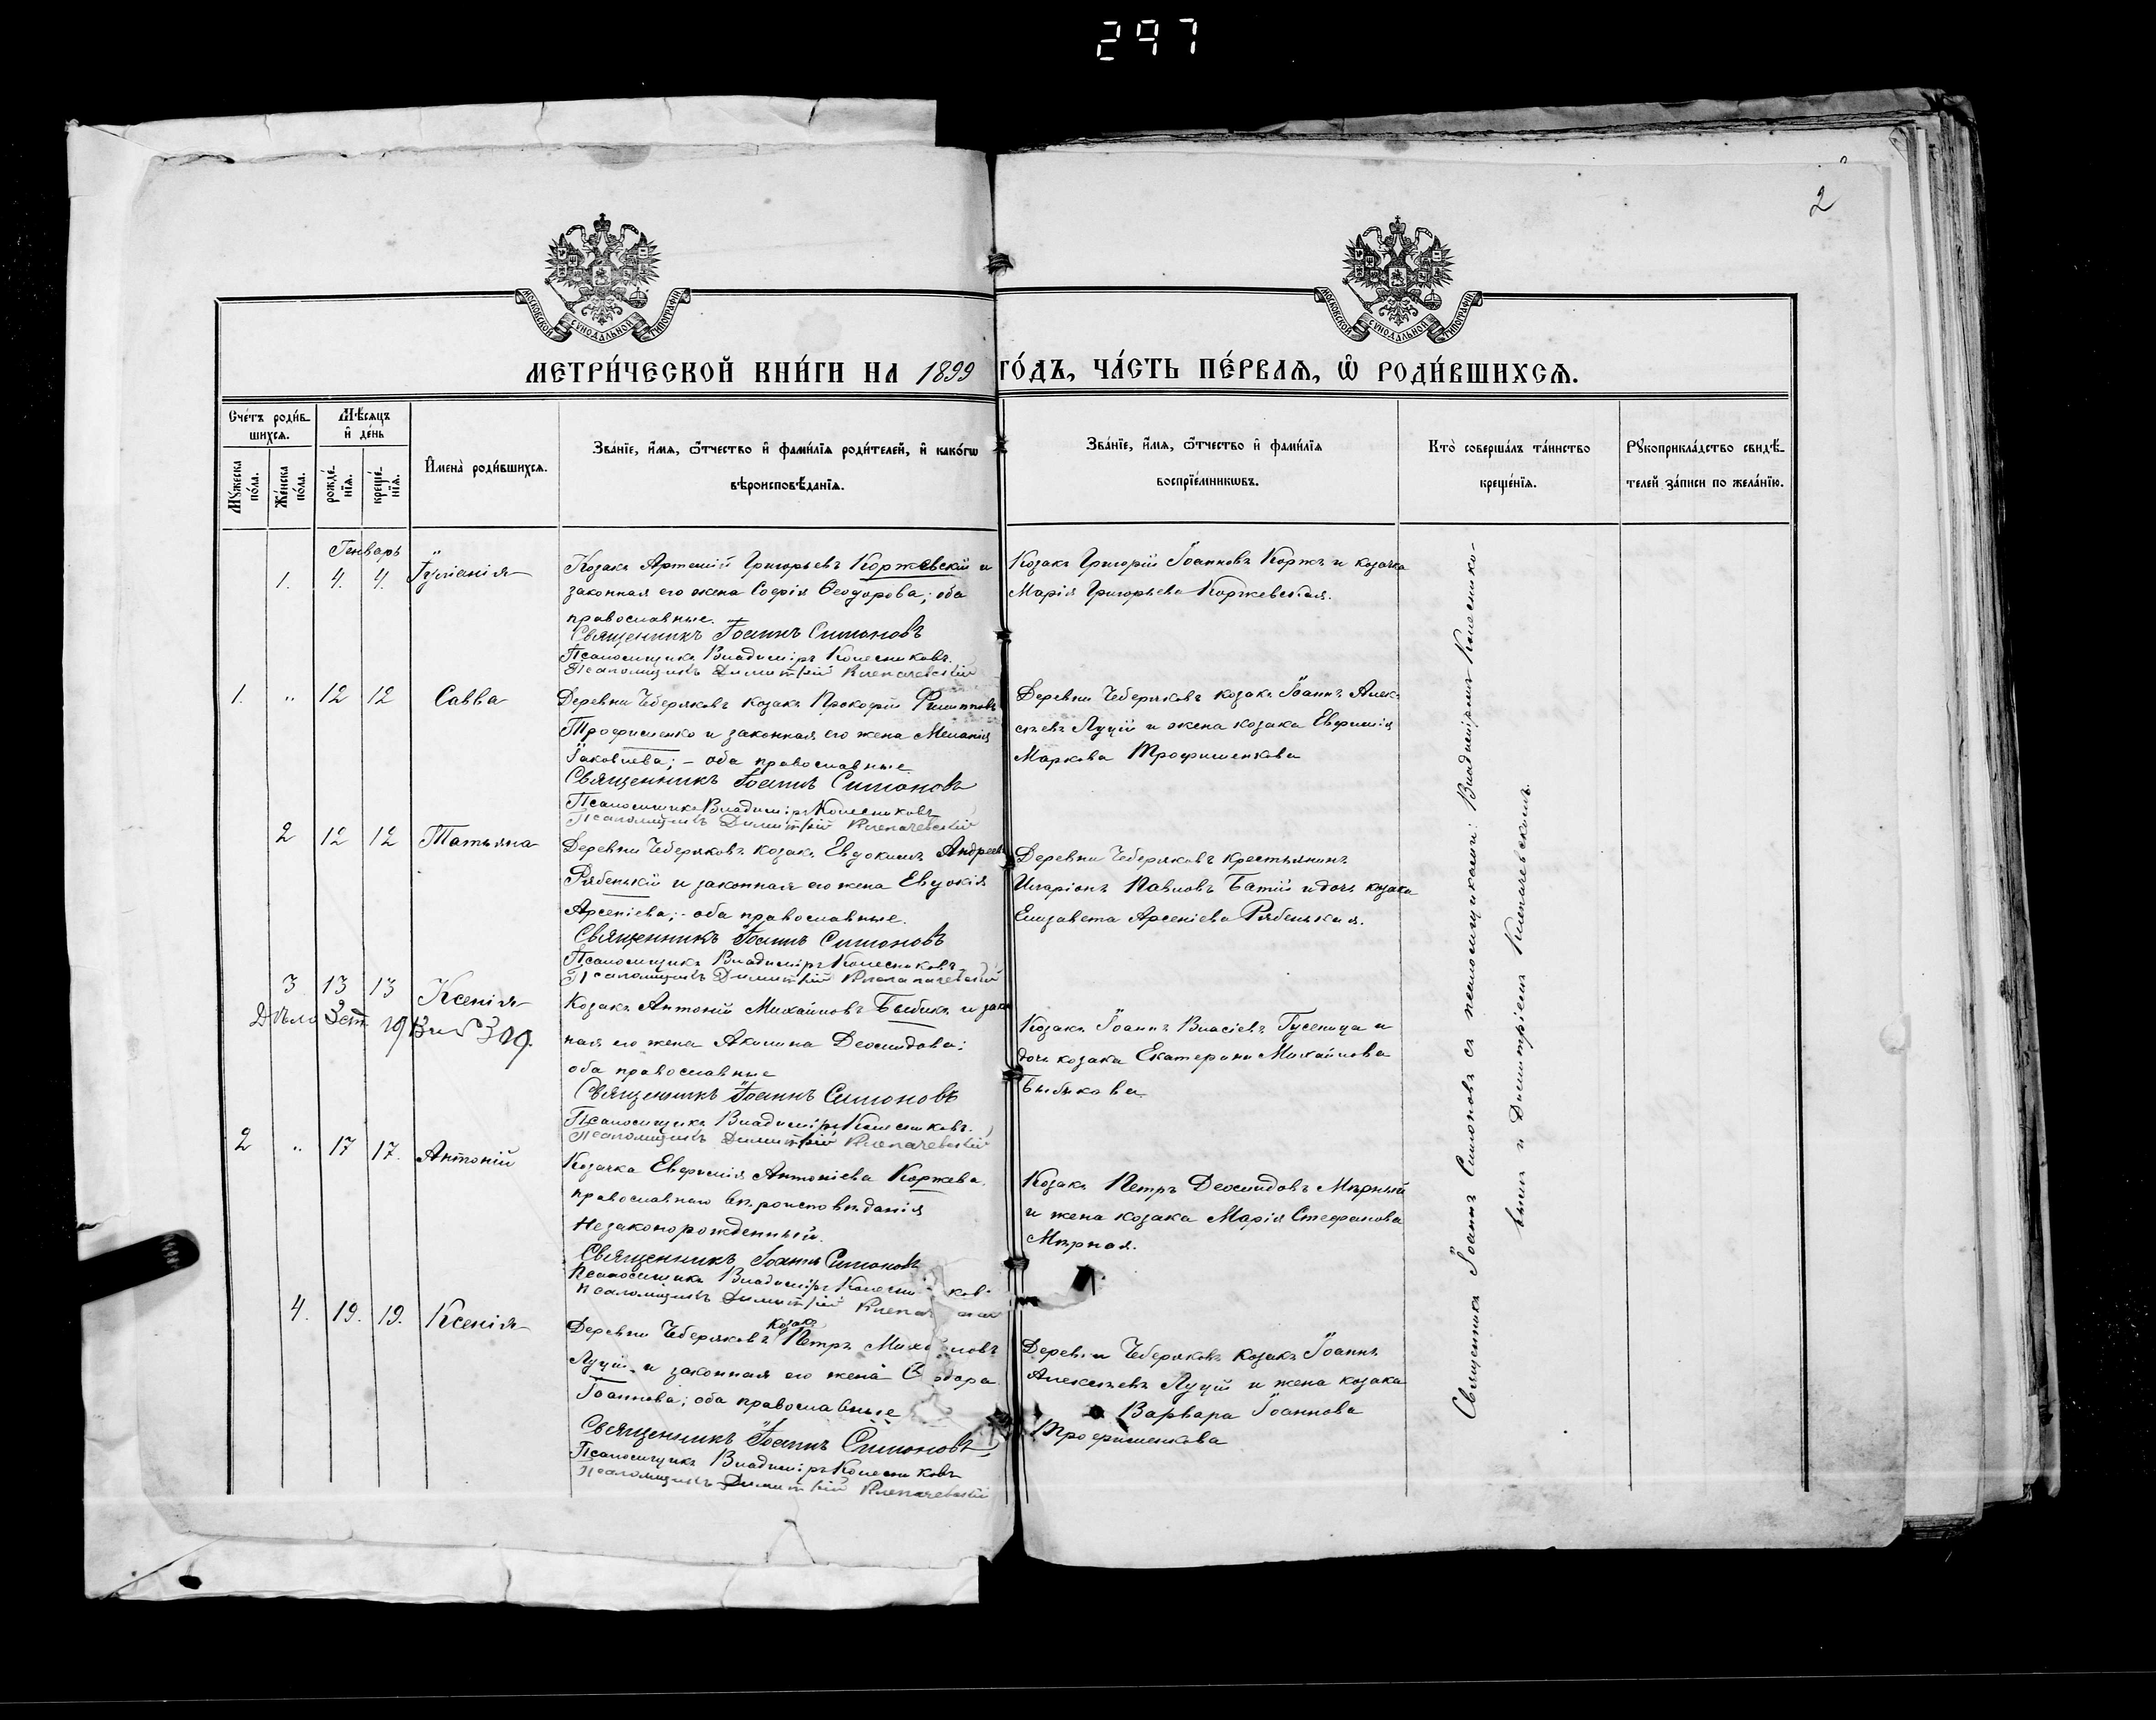 297
2
МОСКОВСКОЙ СѴНОДАЛЬНОЙ ТИПОГРАФІИ
МОСКОВСКОЙ СѴНОДАЛЬНОЙ ТИПОГРАФІИ
МЕТРИ́ЧЕСКОЙ КНИ́ГИ НА 1899 ГО́ДЪ, ЧА́СТЬ ПЕ́РВАЯ, Ѽ РОДИ́ВШИХСЯ.
Сче́тъ роди́в-
шихся.
Мѣ́сяцъ
и҆ де́нь
Мꙋ́жеска по́ла.
Же́нска по́ла.
рожде́-нїя.
креще́-нїя.
И҆мена̀ роди́вшихся.
Зва́нїе, и҆́мя, ѻ҆́тчество и҆ фами́лїя роди́телей, и҆ како́гѡ
вѣроисповѣ́данїя.
Зва́нїе, и҆́мя, ѻ҆́тчество и҆ фами́лїя
воспрїе́мникѡвъ.
Кто̀ соверша́лъ та́инство
креще́нїя.
Рꙋкоприкла́дство свидѣ́-
телей за́писи по жела́нїю.
Генварь
1. 4. 4. Іуліанія
Козакъ Артемій Григорьевъ Коржевскій и
законная его жена Софія Ѳеодорова; оба
православные.
Священникъ Іоаннъ Симоновъ
Псаломщикъ Владиміръ Колесниковъ.
Псаломщикъ Димитрій Клепачевскій
Козакъ Григорій Іоанновъ Коржъ и козачка
Марія Григорьева Коржевская.
1. „ 12 12 Савва
Деревни Чеберяковъ козакъ Прокофій Филипповъ
Трофименко и законная его жена Меланія
Іаковлева; - оба православные
Священникъ Іоаннъ Симоновъ
Псаломщикъ Владиміръ Колесниковъ
Псаломщикъ Димитрій Клепачевскій
Деревни Чеберяковъ козакъ Іоаннъ Алек-
сѣевъ Луцій и жена козака Евфимія
Маркова Трофименкова
2 12 12 Татьяна
Деревни Чеберяковъ козакъ Евдокимъ Андреевъ
Рябенькій и законная его жена Евдокія
Арсеніева; - оба православные.
Священникъ Іоаннъ Симоновъ
Псаломщикъ Владиміръ Колесниковъ
Псаломщикъ Димитрій Клепачевскій
Деревни Чеберяковъ крестьянинъ
Иларіонъ Павловъ Батій и дочь козака
Елизавета Арсеніева Рябенькая.
3 13 13 Ксенія
Дѣло 3 ст.
Козакъ Антоній Михайловъ Быбикъ и закон
ная его жена Акилина Деомидова;
оба православные
Священникъ Іоаннъ Симоновъ
Псаломщикъ Владиміръ Колесниковъ.
Псаломщикъ Димитрій Клепачевскій
Козакъ Іоаннъ Власіевъ Гусеница и
дочь козака Екатерина Михайлова
Быбикова
2 „ 17 17. Антоній
Козачка Евфимія Антоніева Коржева.
православнаго вѣроисповѣданія
Незаконорожденный.
Священникъ Іоаннъ Симоновъ
Псаломщикъ Владиміръ Колесниковъ
Псаломщикъ Димитрій
Козакъ Петръ Деомидовъ Мѣрный
и жена козака Марія Стефанова
Мѣрная.
4. 19. 19. Ксенія
Деревни Чеберяковъ козакъ Петръ Михайловъ
Луцій и законная его жена
Іоаннова; оба православные
Священникъ Іоаннъ Симоновъ
Псаломщикъ Владиміръ Колесниковъ
Псаломщикъ Димитрій Клепачевскій
Деревни Чеберяковъ козакъ Іоаннъ
Алексѣевъ Луцій и жена козака
Варвара Іоаннова
Трофименкова
Священникъ Іоаннъ Симоновъ съ псаломщиками: Владиміромъ Колеснико-
вымъ и Димитріемъ Клепачевскимъ.